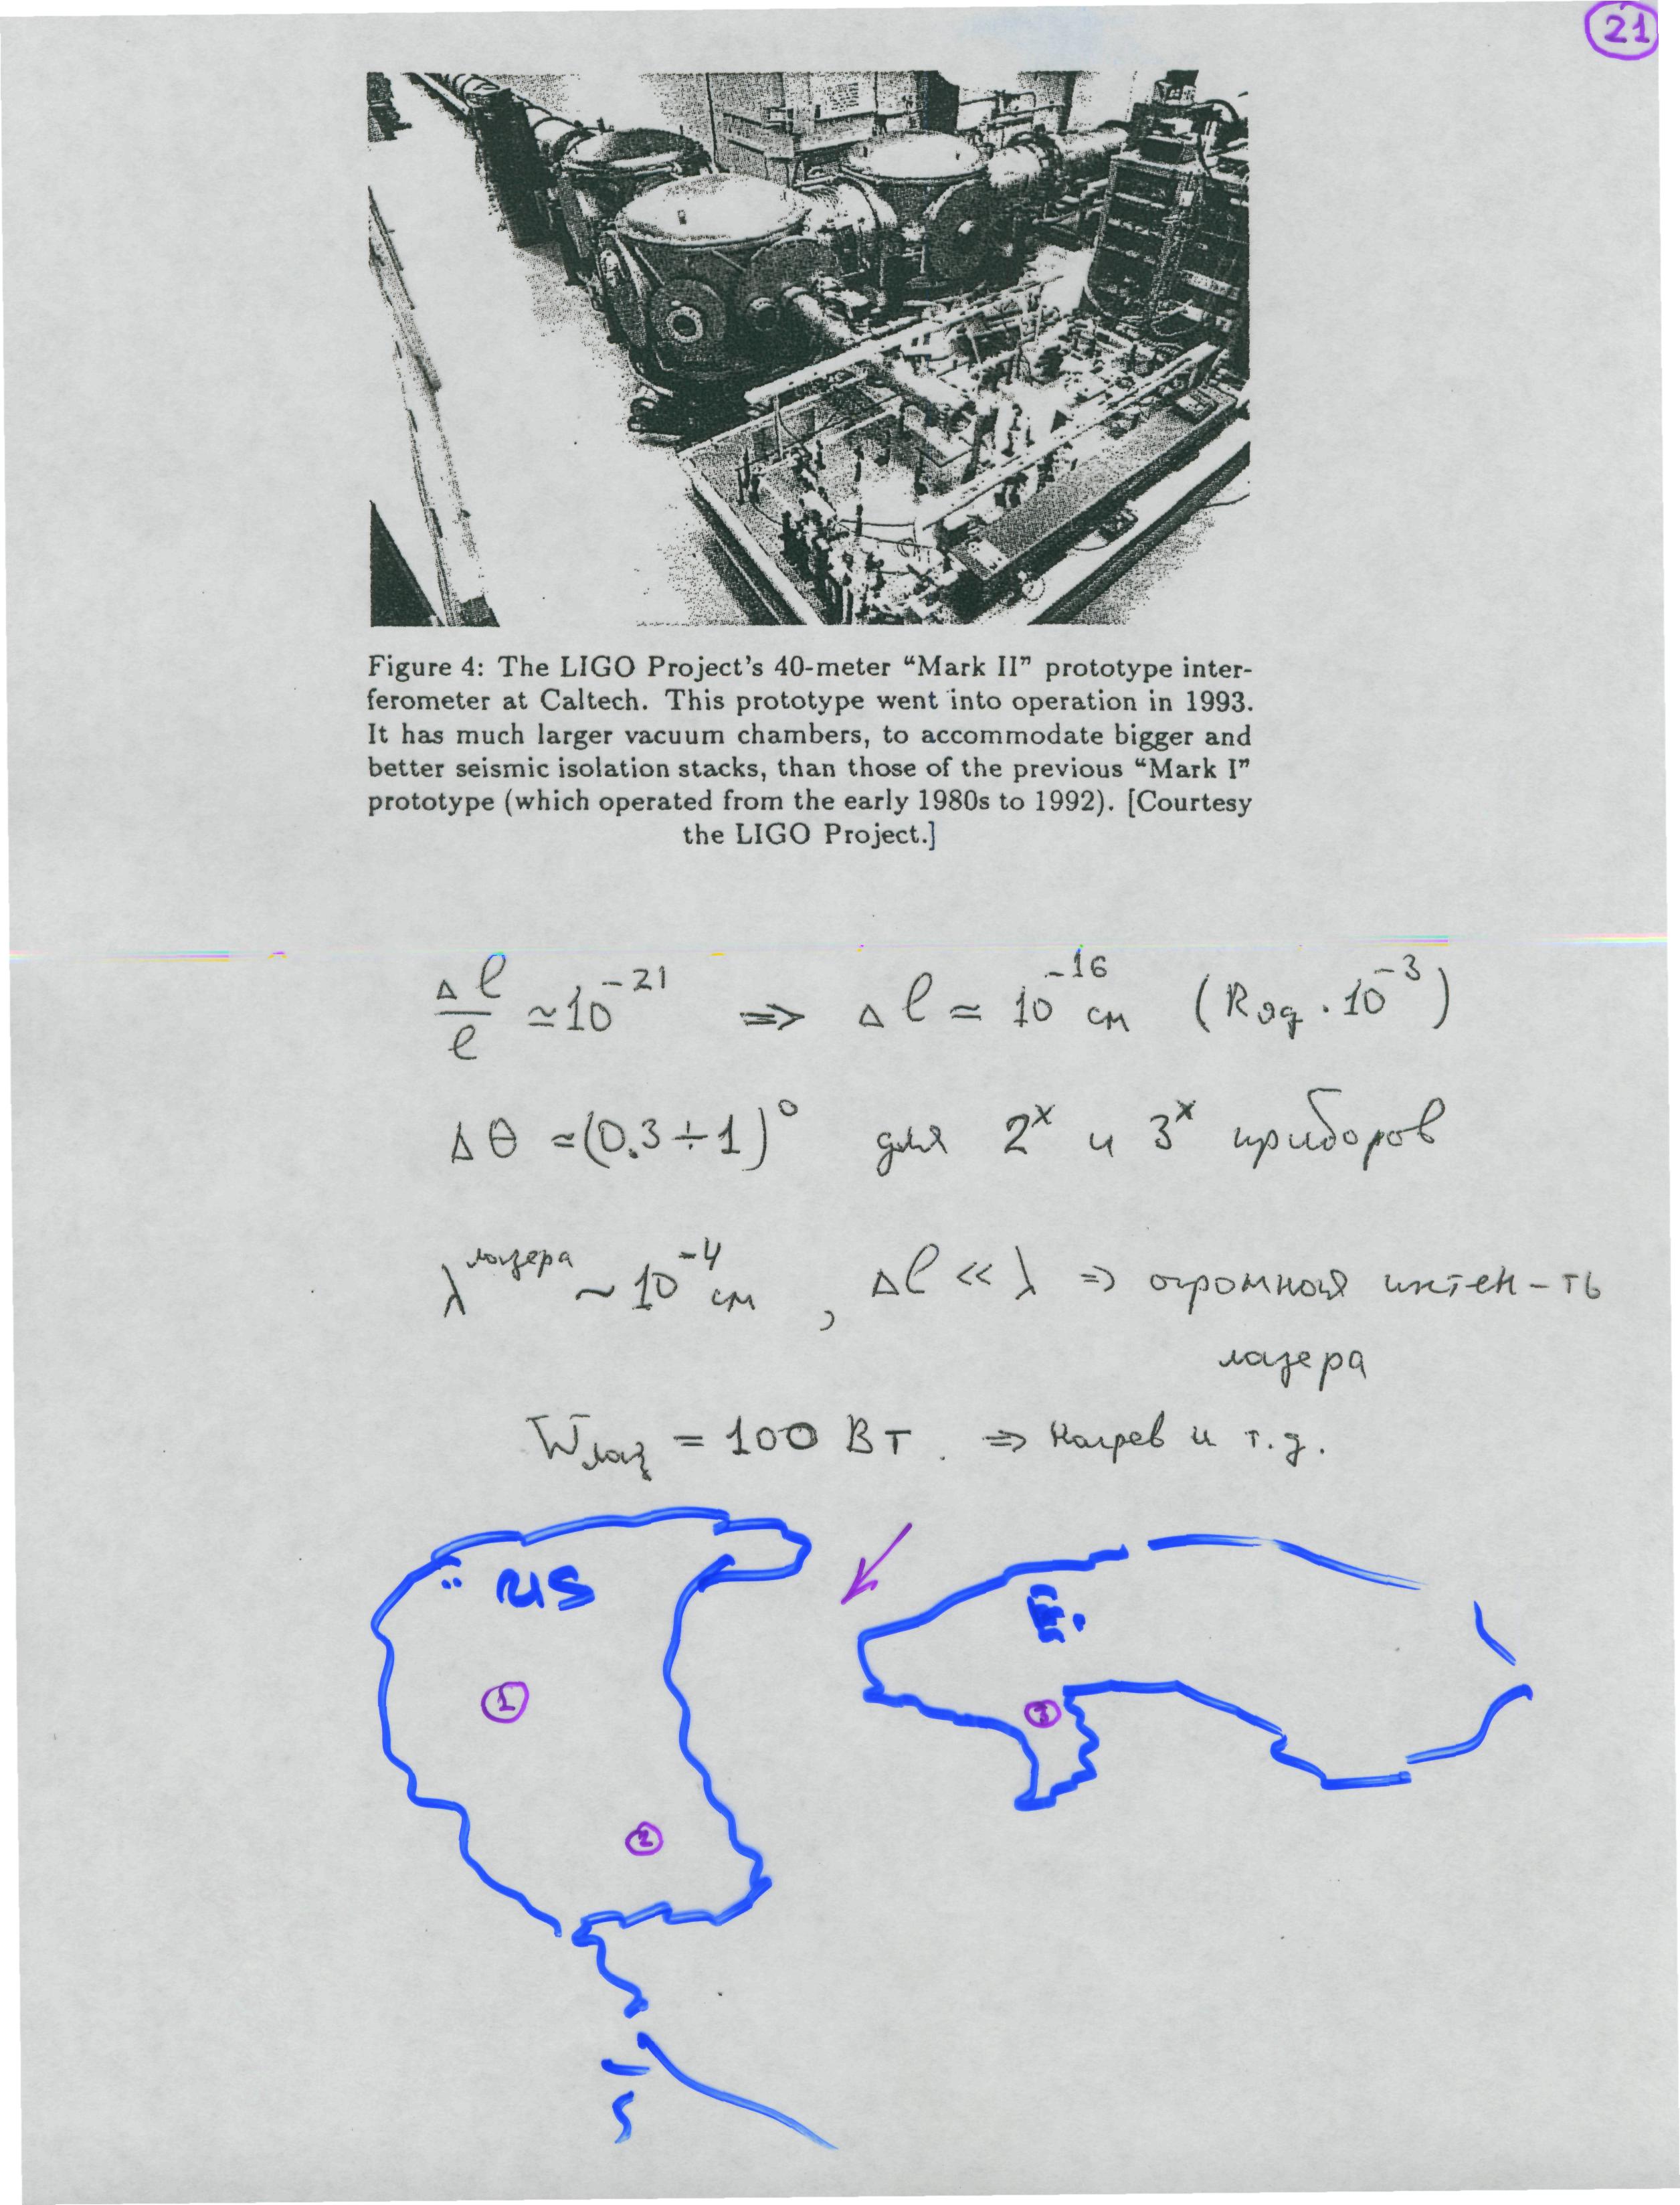 21
Figure 4: The LIGO Project's 40-meter “Mark II” prototype inter-
ferometer at Caltech. This prototype went into operation in 1993.
It has much larger vacuum chambers, to accommodate bigger and
better seismic isolation stacks, than those of the previous “Mark I”
prototype (which operated from the early 1980s to 1992). [Courtesy
the LIGO Project.]
Δl/l ≃ 10⁻²¹ ⇒ Δl ≃ 10⁻¹⁶ см (Rяд · 10⁻³)
Δθ ≃ (0.3 ÷ 1)° для 2ˣ и 3ˣ приборов
λ лазера ~ 10⁻⁴ см, Δl << λ ⇒ огромная интен-ть
лазера
Wлаз = 100 Вт. ⇒ нагрев и т.д.
US
E.
1
3
2